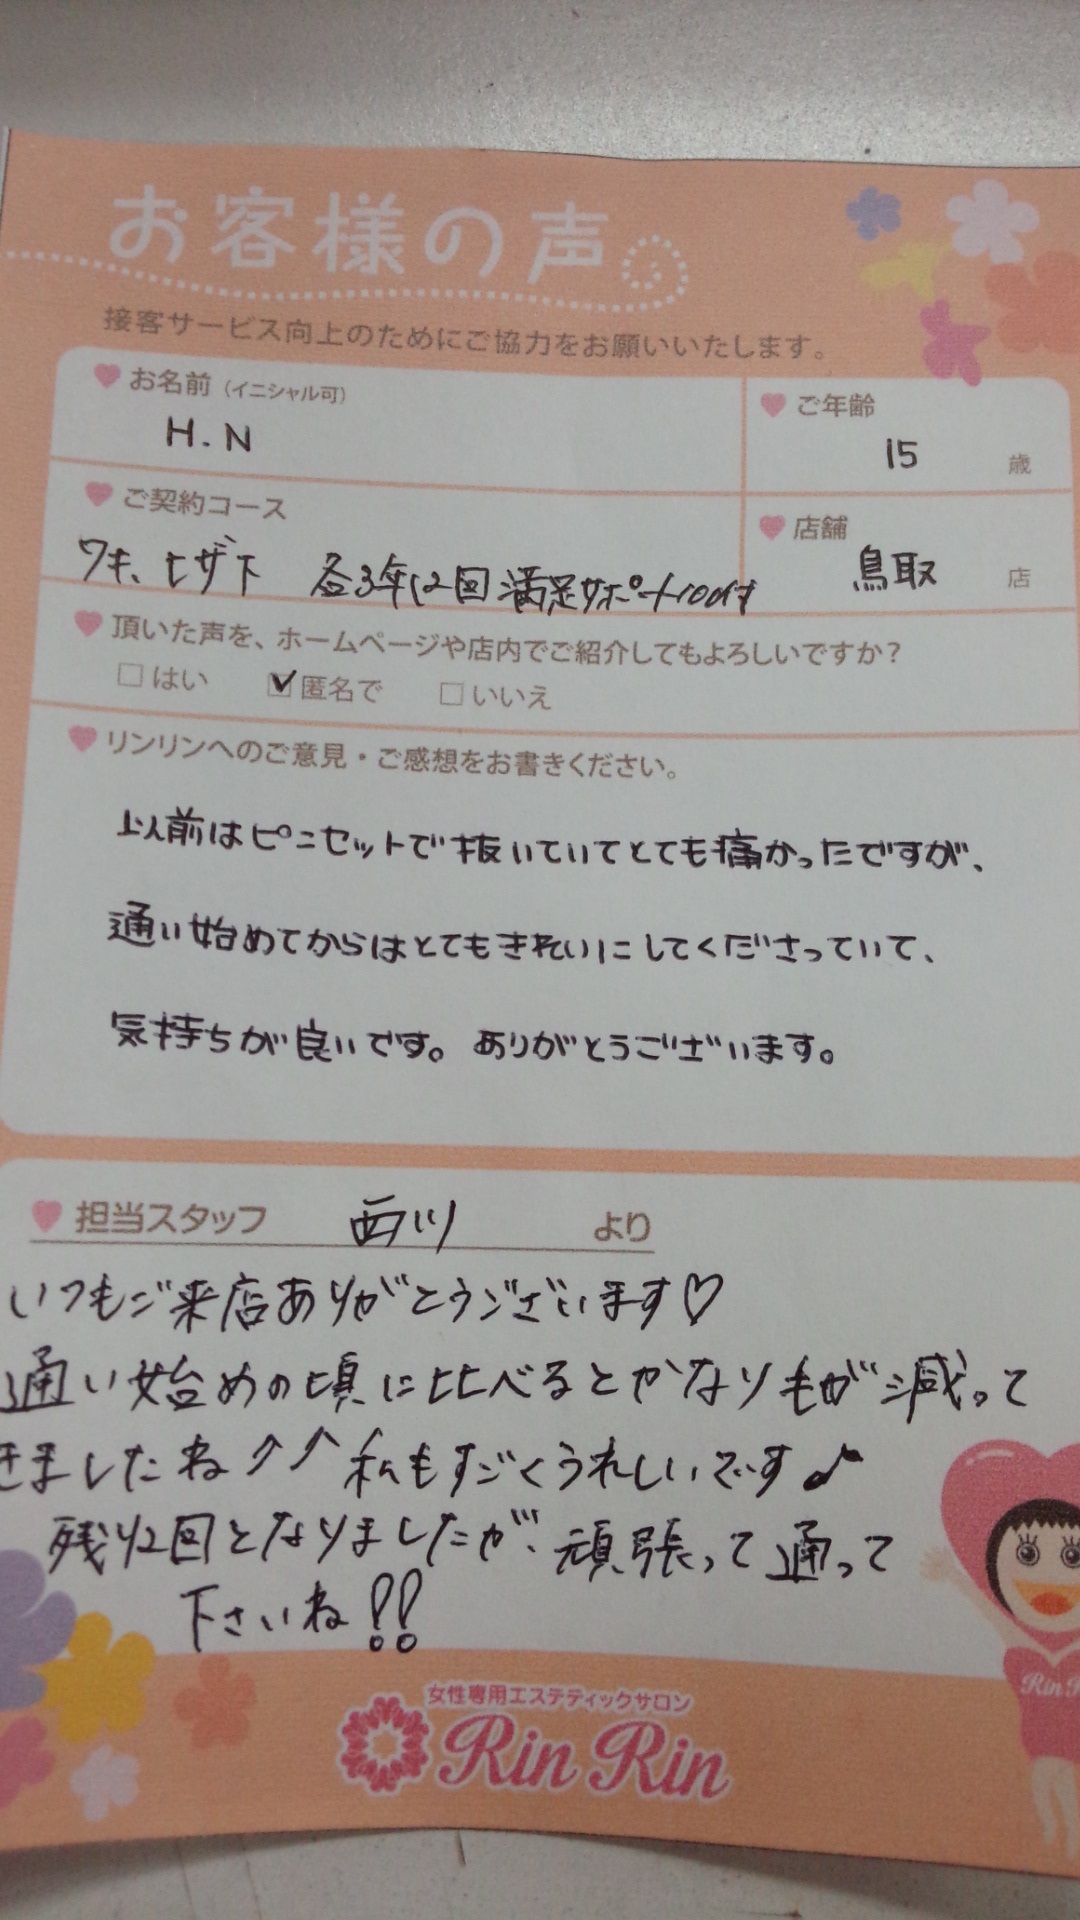 お客様の声
接客サービス向上のためにご協力をお願いいたします。
お名前（イニシャル可）
H.N
ご年齢
15 歳
ご契約コース
ワキ、ヒザ下 各3年12回 満足サポート100付
店舗
鳥取 店
頂いた声を、ホームページや店内でご紹介してもよろしいですか？
□はい ☑匿名で □いいえ
リンリンへのご意見・ご感想をお書きください。
以前はピンセットで抜いていてとても痛かったですが、
通い始めてからはとてもきれいにしてくださっていて、
気持ちが良いです。ありがとうございます。
担当スタッフ 西川 より
いつもご来店ありがとうございます♡
通い始めの頃に比べるとかなり毛が減って
きましたね↗↗私もすごくうれしいです♪
残り2回となりましたが、頑張って通って
下さいね!!
女性専用エステティックサロン
Rin Rin